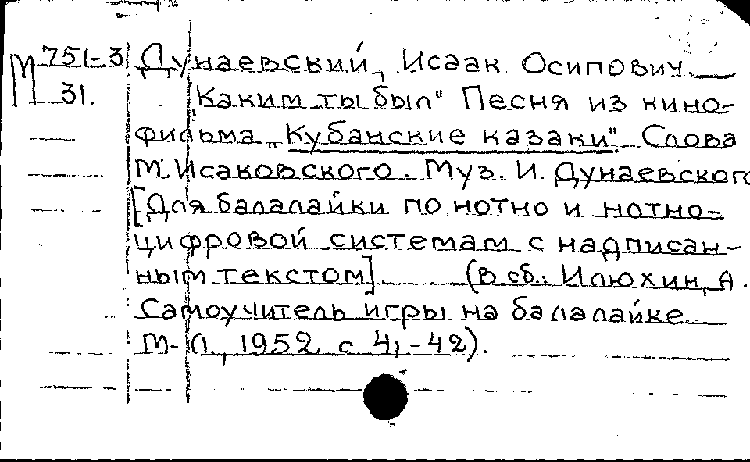 М 751-3 Дунаевский, Исаак Осипович.
31. "Каким ты был" Песня из кино-
фильма "Кубанские казаки". Слова
М. Исаковского. Муз. И. Дунаевского
[Для балалайки по нотно и нотно-
цифровой системам с надписан-
ным текстом] (В сб.: Илюхин, А.
Самоучитель игры на балалайке
М-Л, 1952 с 41-42).